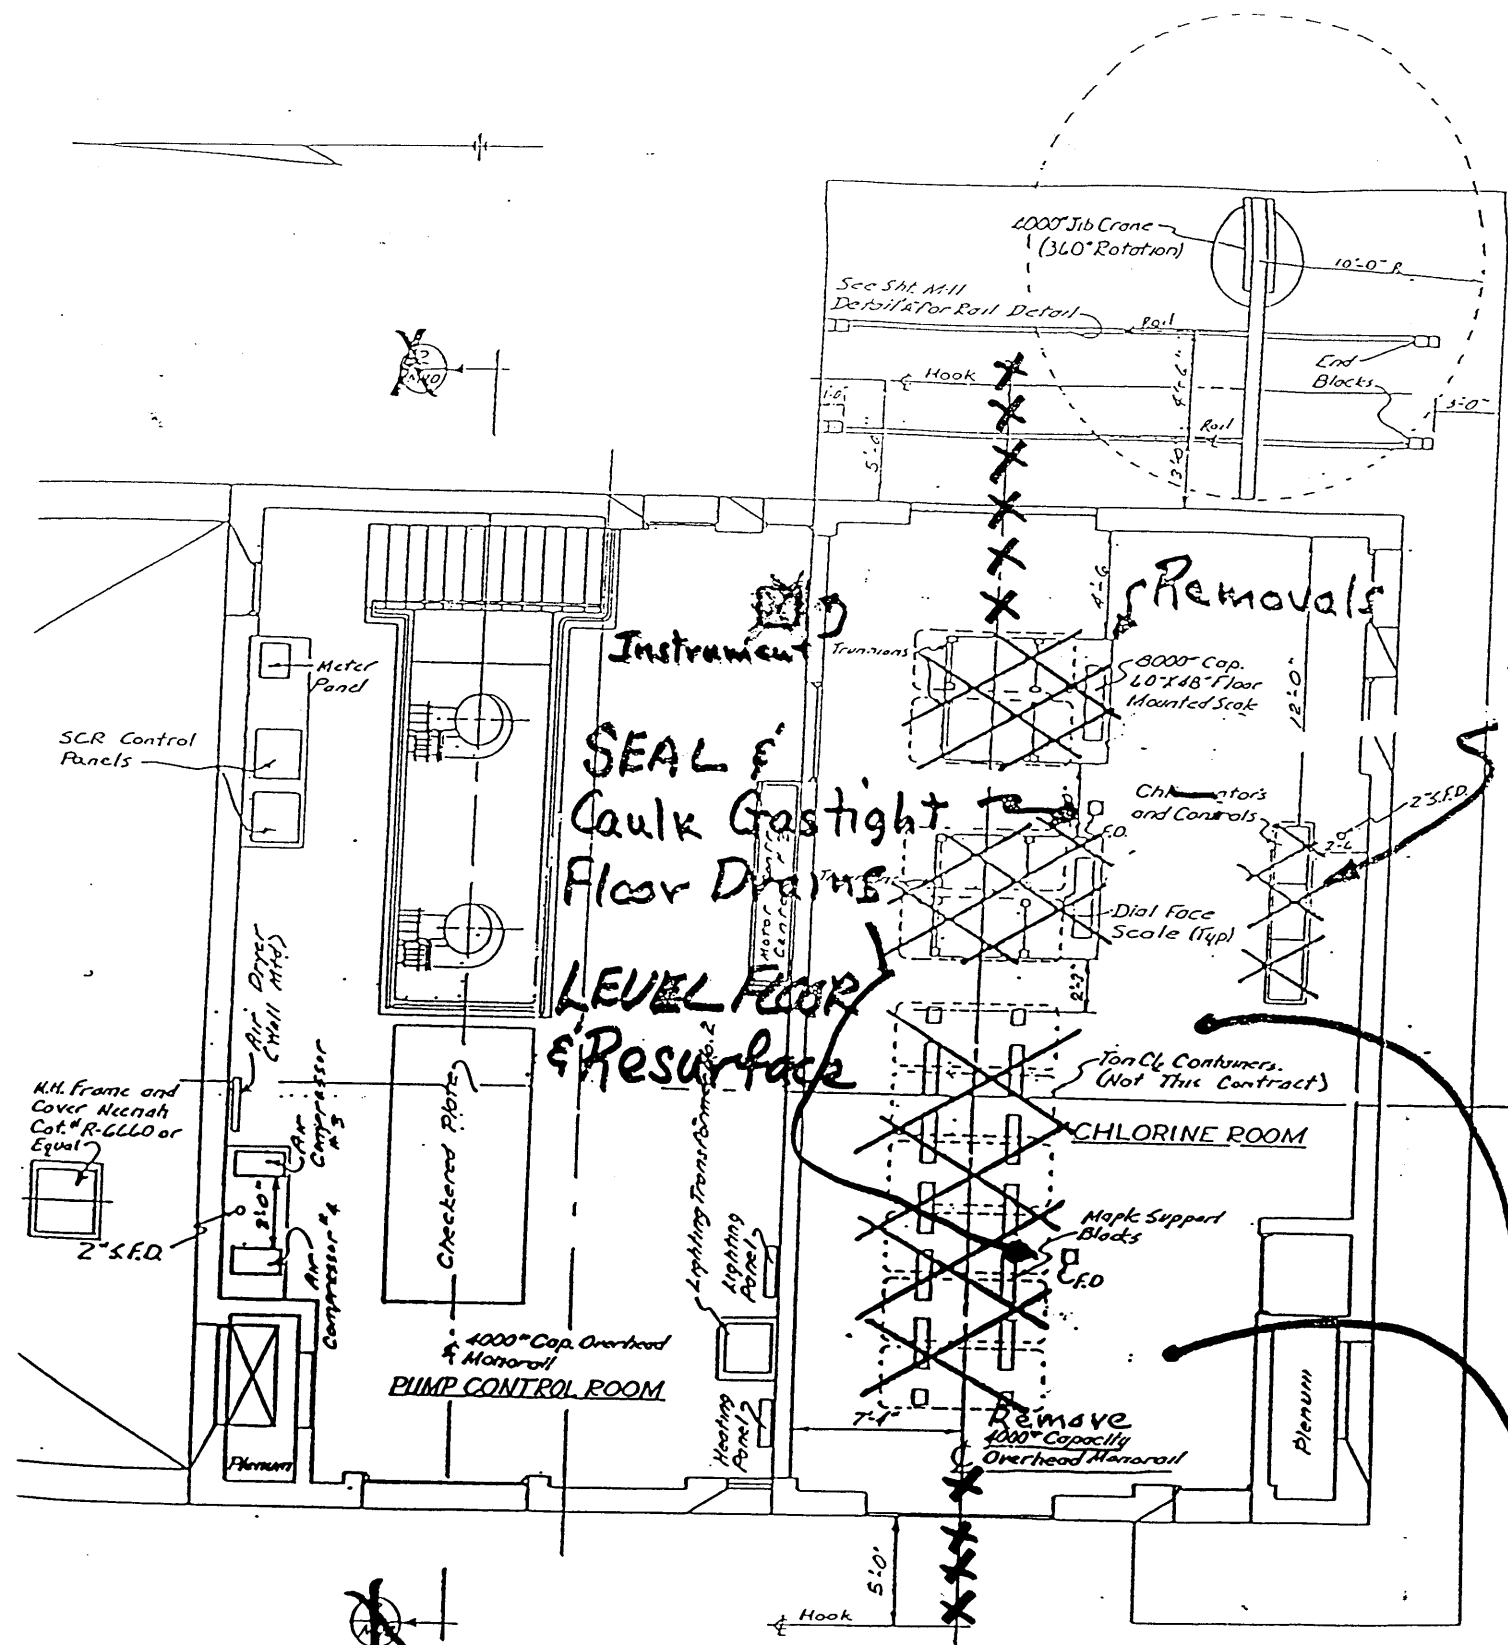 4000# Jib Crane
(360° Rotation)
10'-0" R.
See Sht. M-11
Detail 2 for Rail Detail
Rail
End
Blocks
Hook
1'-0"
4'-6"
3'-0"
Rail
5'-6"
13'-0"
4'-6
Removals
Instrument
Trunnions
8000# Cap.
60"X48" Floor
Mounted Scale
12'-0"
Meter
Panel
SCR Control
Panels
SEAL &
Caulk Gastight
Floor Drains
Chlorinators
and Controls
2" S.F.D.
F.D.
2'-6
Motor Control
Dial Face
Scale (Typ)
LEVEL FLOOR
& Resurface
2'-2"
Air Dryer
(Wall Mtd)
Ton Cl2 Containers.
(Not This Contract)
CHLORINE ROOM
M.H. Frame and
Cover Neenah
Cat.# R-6660 or
Equal
Air
Compressor
#3
Checkered Plate
Lighting Transformer No. 2
Lighting
Panel
Maple Support
Blocks
F.D
3'-0"
2" S.F.D.
Air
Compressor #4
4000# Cap. Overhead
Monorail
PUMP CONTROL ROOM
Heating
Panel
Plenum
7'-1"
Remove
4000# Capacity
Overhead Monorail
Plenum
5'-0"
Hook